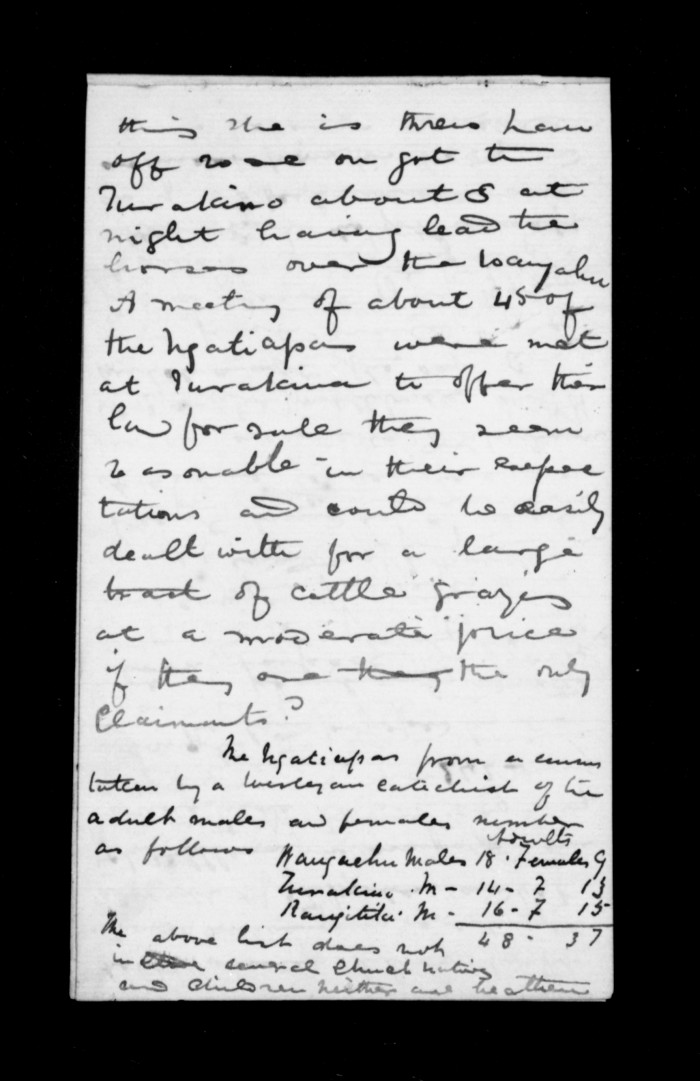 this she is thrown
off rose on got to
Turakino about 8 at
night having lead the
horses over the Wangahu
A meeting of about 45 of
the Ngatiapas were met
at Turakina to offer their
law for sale they seem
reasonable in their expec
tations and could be easily
dealt with for a large
tract of cattle grazing
at a moderate price
if they are they the only
Claimants?
The Ngatiapas from a census
taken by a Wesleyan catechist of the
adult males and females number
as follows Adults
Wangaehu Males 18 . Females 9
Turakino . M - 14 - 7 13
Rangitiki . M - 16 - 7 15
48 - 37
The above list does not
in several Church natives
and children neither are heathen